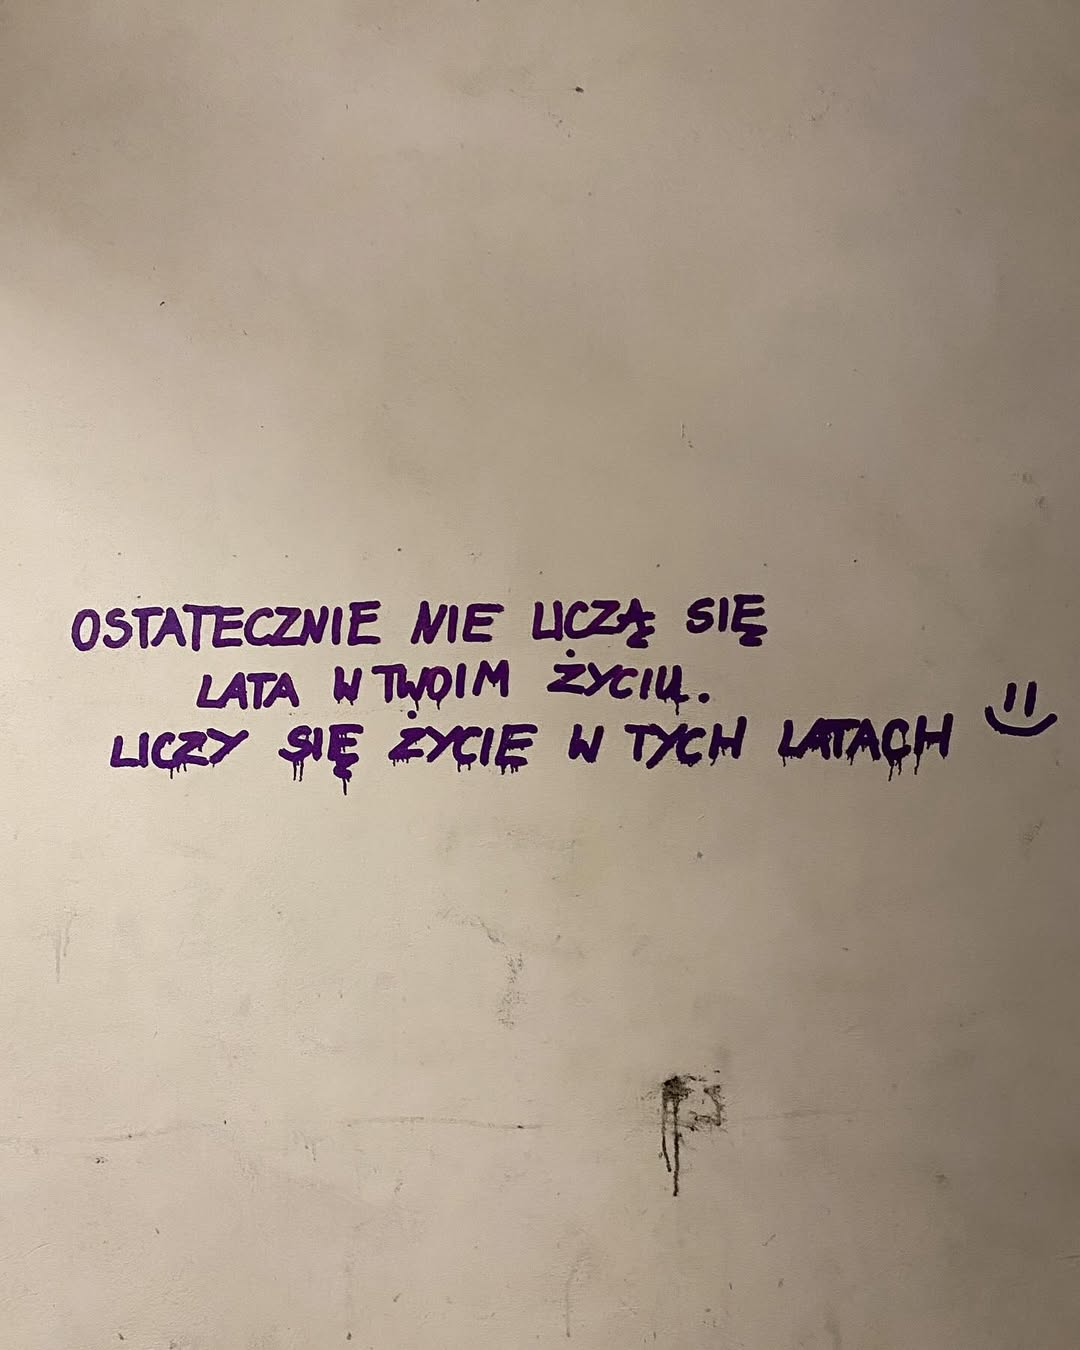 OSTATECZNIE NIE LICZĄ SIĘ
LATA W TWOIM ŻYCIU.
LICZY SIĘ ŻYCIE W TYCH LATACH